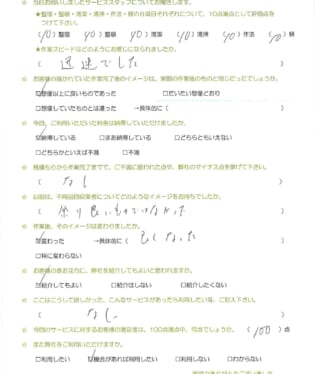 ☆ 当日お伺いしましたサービススタッフについてお聞きします。
★整理・整頓・清潔・清掃・作法・躾の6項目それぞれについて、10点満点として評価点をつけて下さい。
(10)整理 (10)整頓 (10)清潔 (10)清掃 (10)作法 (10)躾
★作業スピードはどのようにお感じになられましたか。
( 迅速でした )
☆ お客様の描かれていた作業完了後のイメージは、実際の作業後のものと同じだったでしょうか。
☑想像以上に良いものであった □だいたい想像どおり
□想像していたものとは違った →具体的に( )
☆ 今回、ご利用いただいた料金は納得していただけましたか。
☑納得している □まあ納得している □どちらともいえない
□どちらかといえば不満 □不満
☆ 見積もりから作業完了までで、ご不満に思われた点や、弊社のマイナス点を挙げて下さい。
( なし )
☆ 以前は、不用品回収業者についてどのようなイメージをお持ちでしたか。
( 余り良いものではなかった )
☆ 作業後、そのイメージは変わりましたか。
☑変わった →具体的に( 良くなった )
□特に変わらない
☆ お客様の身近な方に、弊社を紹介してもよいと思われますか。
☑紹介してもよい □紹介はしない □紹介したくない
☆ ここはこうして欲しかった、こんなサービスがあったら利用したい等、ご記入下さい。
( なし )
☆ 今回のサービスに対するお客様の満足度は、100点満点中、何点でしょうか。 (100)点
☆ また弊社をご利用いただけますか。
□利用したい ☑機会があれば利用したい □利用しない □わからない